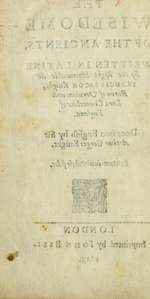 THE
WISEDOME
OF THE ANCIENTS,
WRITTEN IN LATINE
By the Right Honourable Sir
FRANCIS BACON Knight,
Baron of Verulam, and
Lord Chancelor of
England.
Done into English by Sir
Arthur Gorges Knight.
Scutum inuincibile fides.
LONDON
Imprinted by IOHN BILL.
1619.